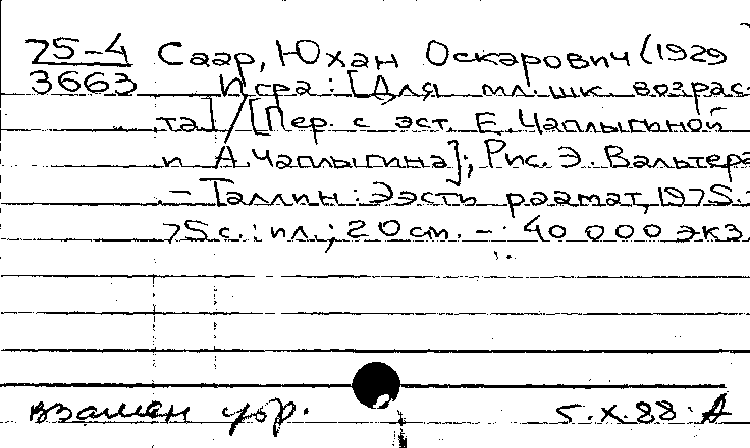 75-4 Саар, Юхан Оскарович (1929
3663 Игра: [Для мл. шк. возрас-
та] / [Пер. с эст. Е. Чаплыгиной
и А. Чаплыгина]; Рис. Э. Вальтера
. – Таллин: Ээсти раамат, 1975. -
75 с.: ил.; 20 см. – 40 000 экз.
взамен 5.X.88. А